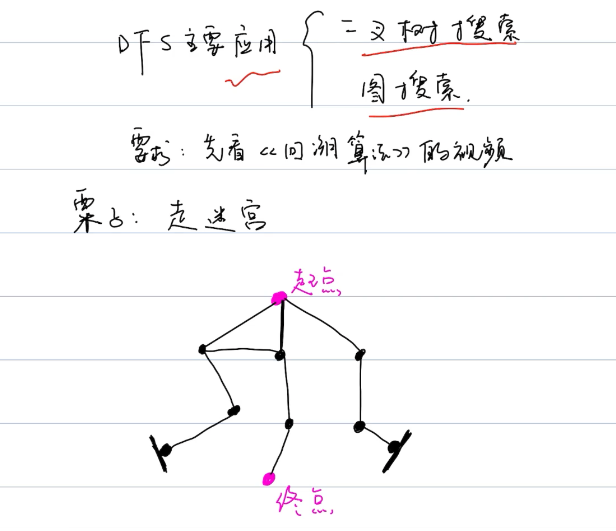 DFS主要应用 二叉树搜索
图搜索.
要求: 先看《回溯算法》的视频
栗子: 走迷宫
起点
终点